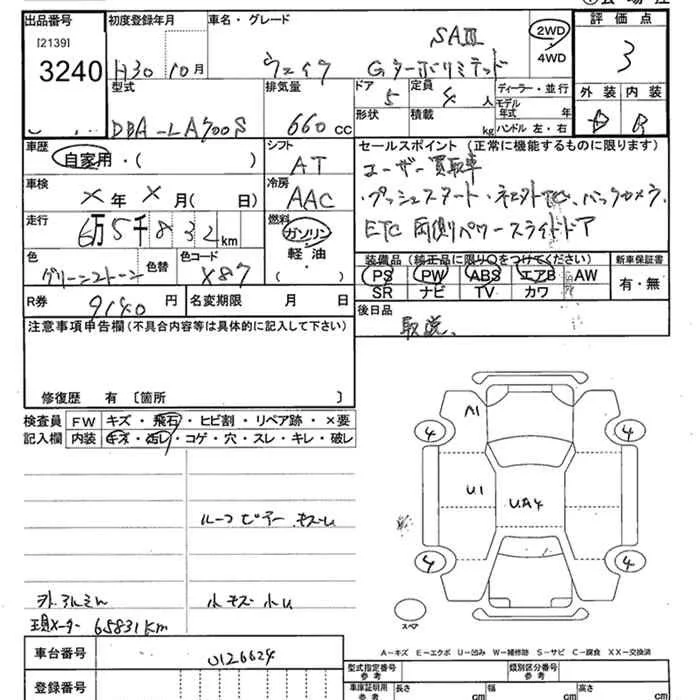 出品番号 初度登録年月 車名・グレード 評価点
[2139]
3240
H30 10月
ウェイク
SAⅢ
Gターボリミテッド
2WD
4WD
3
外装 内装
B
型式 排気量 ドア 定員 ディーラー・並行
DBA-LA700S 660cc 5 4人
モデル年式 年
形状 積載 kg ハンドル 左・右
車歴
自家用・( )
シフト
AT
セールスポイント(正常に機能するものに限ります)
ユーザー買取車
プッシュスタート・
バックカメラ
ETC 両側パワースライドドア
車検
X年 X月( 日)
冷房
AAC
走行
6万5千832km
燃料
ガソリン
軽油
( )
色 色替 色コード
X87
装備品(純正品に限り○をつけてください) 新車保証書
PS PW ABS エアB AW
SR ナビ TV カワ
有・無
R券 9140円 名変期限 月 日
後日品
取説、
注意事項申告欄(不具合内容等は具体的に記入して下さい)
修復歴 有〔箇所 〕
検査員 FW キズ・飛石・ヒビ割・リペア跡・×要
記入欄 内装 キズ・汚レ・コゲ・穴・スレ・キレ・破レ
A1
4 4
U1
UA4
4 4
スペア
ルーフ
小キズ小U
現メーター 65831km
A-キズ E-エクボ U-凹み W-補修跡 S-サビ C-腐食 XX-交換済
車台番号 0126624
登録番号
型式指定番号 参考 類別区分番号 参考
車庫証明用 参考 長さ cm 幅 cm 高さ cm